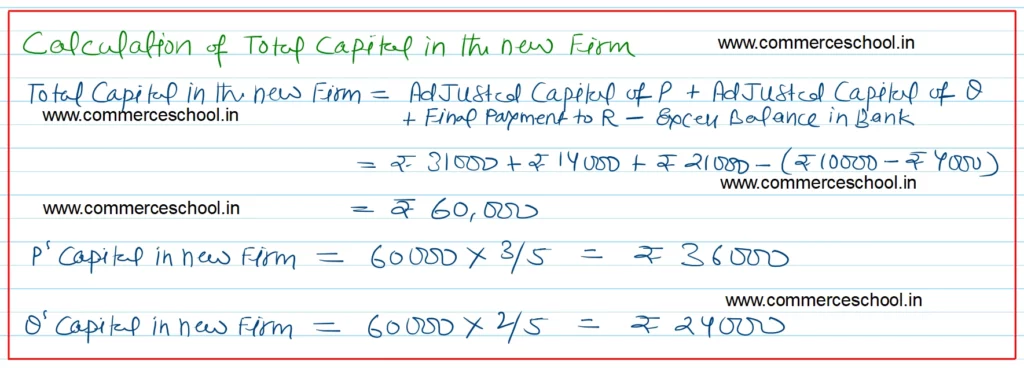 Calculation of Total Capital in the new Firm
www.commerceschool.in
Total Capital in the new Firm = Adjusted Capital of P + Adjusted Capital of Q
www.commerceschool.in
+ Final Payment to R - Excess Balance in Bank
= ₹ 31000 + ₹ 14000 + ₹ 21000 - (₹ 10000 - ₹ 4000)
www.commerceschool.in
www.commerceschool.in
= ₹ 60,000
P' Capital in new Firm = 60000 × 3/5 = ₹ 36000
www.commerceschool.in
Q' Capital in new Firm = 60000 × 2/5 = ₹ 24000